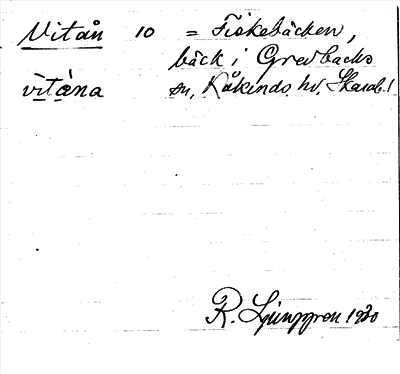 Vitån 10 = Fiskebäcken,
bäck i Grevbacks
vìtá̀na sn, Kåkinds hd. Skarab. l
R. Ljunggren 1920